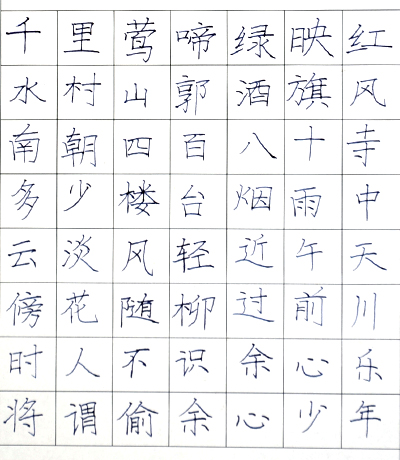 千里莺啼绿映红
水村山郭酒旗风
南朝四百八十寺
多少楼台烟雨中
云淡风轻近午天
傍花随柳过前川
时人不识余心乐
将谓偷余心少年